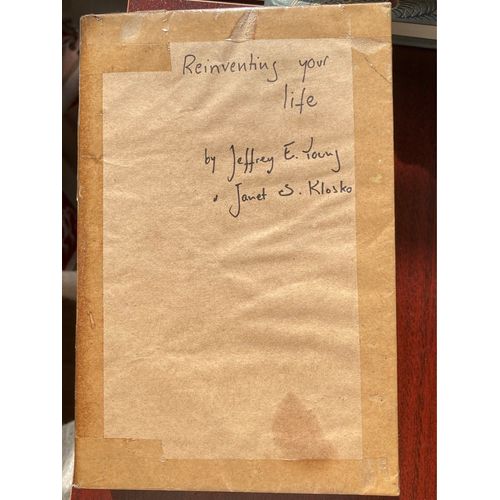 Reinventing your
life
by Jeffrey E. Young
• Janet S. Klosko